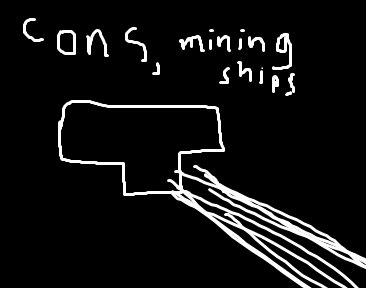 cons, mining
ships